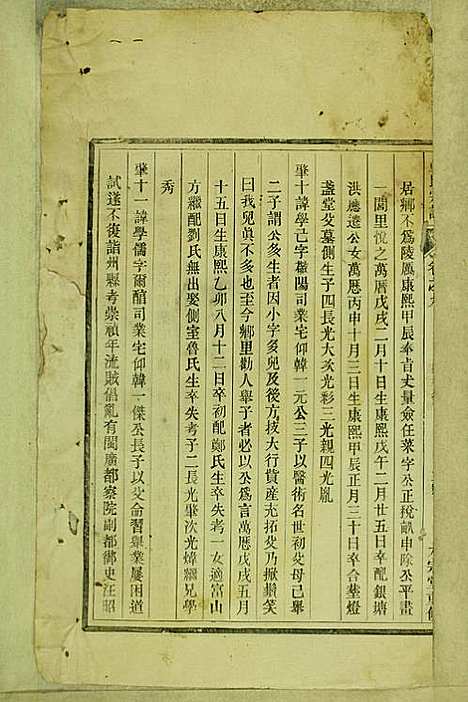 居鄉不爲陵厲康熙甲辰奉旨丈量僉任菜字公正稅畝申除公平畫
一閭里悅之萬曆戊戌二月十日生康熙戊午二月廿五日辛配銀塘
洪應遴公女萬曆丙申十月三日生康熙甲辰正月三十日卒合塟燈
盞堂父墓側生子四長光大次光彩三光親四光胤
肇十諱學己字 陽司業宅仰韓一元公三子以醫術名世初父母已舉
二子謂公多生者因小字多兒及後方技大行貲産尤拓父乃掀鬚笑
曰我兒眞不多也至今鄉里勸人舉子者必以公爲言萬曆戊戌五月
十五日生康熙乙卯八月十二日卒初配鄭氏生卒失考一女適富山
方繼配劉氏無出娶側室魯氏生卒失考子二長光肇次光煒繩兄學
秀
肇十一諱學儒字爾醕司業宅仰韓一傑公長子以父命習舉業屢困道
試遂不復詣州縣考崇禎年流賊倡亂有閩廣都察院副都御史汪昭